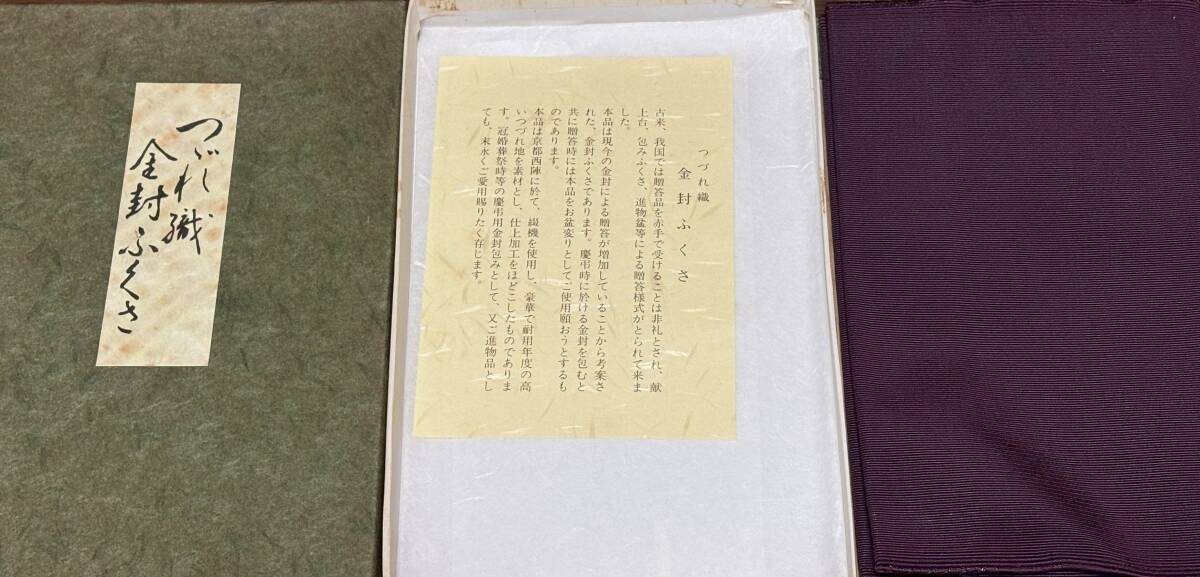 つづれ織
金封ふくさ
つづれ織
金封ふくさ
古来、我国では贈答品を赤手で受けることは非礼とされ、献
上台、包みふくさ、進物盆等による贈答様式がとられて来ま
した。
本品は現今の金封による贈答が増加していることから考案さ
れた、金封ふくさであります。慶弔時に於ける金封を包むと
共に贈答時には本品をお盆変りとしてご使用願おうとするも
のであります。
本品は京都西陣に於て、綴機を使用し、豪華で耐用年度の高
いつづれ地を素材とし、仕上加工をほどこしたものでありま
す。冠婚葬祭時等の慶弔用金封包みとして、又ご進物品とし
ても、末永くご愛用賜りたく存じます。